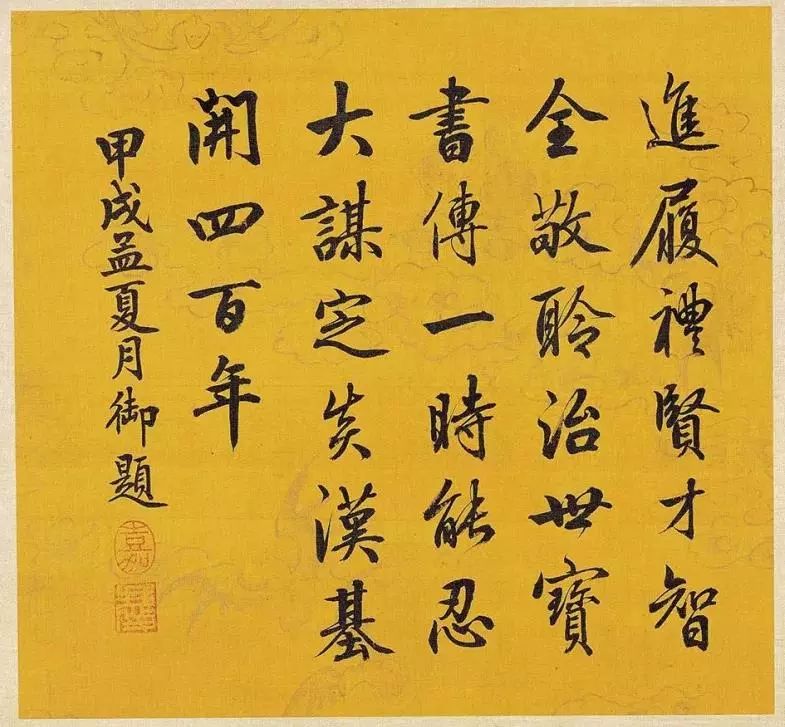 進履禮賢才智
全敬聆治世寶
書傳一時能忍
大謀定矣漢基
開四百年
甲戌孟夏月御題
嘉